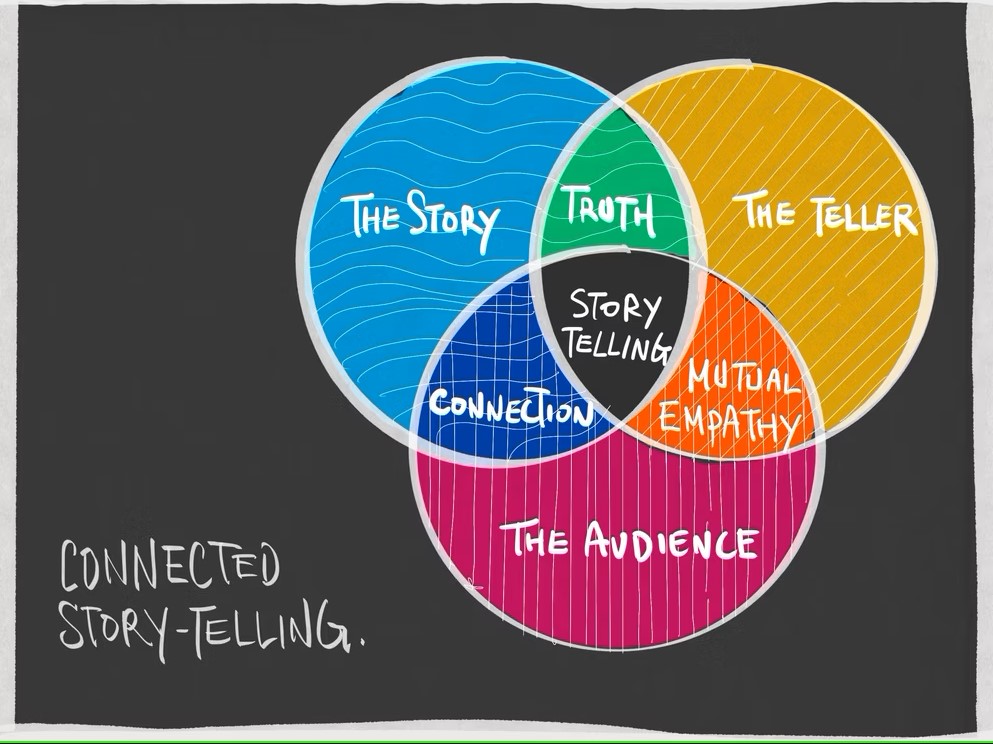 THE STORY
TRUTH
THE TELLER
STORY
TELLING
CONNECTION
MUTUAL
EMPATHY
THE AUDIENCE
CONNECTED
STORY-TELLING.